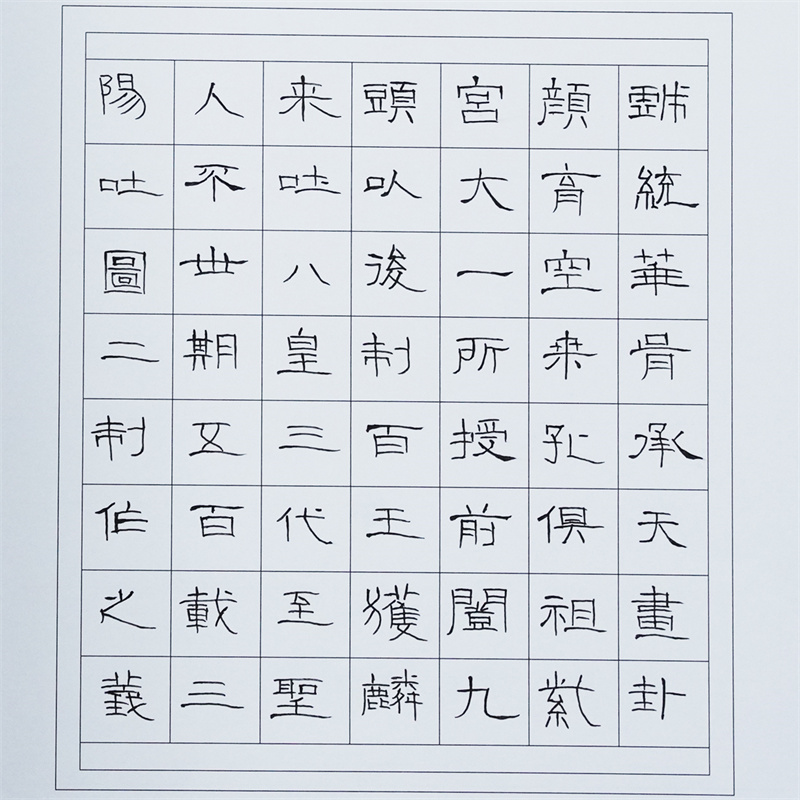 統華胥承天畫卦
顔育空桒孔俱祖紫
宮大一所授前闓九
頭以後制百王獲麟
来吐八皇三代至聖
人不世期五百載三
陽吐圖二制作之義